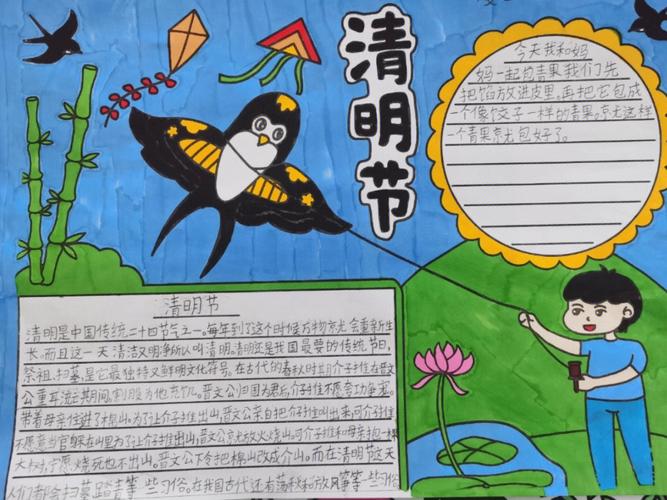 清明节
今天我和妈
妈一起包青果我们先
把馅放进皮里，再把它包成
一个像饺子一样的青果。京尤这样
一个青果京尤包好了。
清明节
清明是中国传统二十四节气之一。每年到了这个时候万物京尤会重新生
长。而且这一天清洁又明净所以叫清明。清明还是我国最要的传统节日，
祭祖、扫墓是它最独特又鲜明文化符号。在古代的春秋时期介子推在晋文
公重耳流亡期间，割股为他充饥。晋文公归国为君后，介子推不愿夸功争宠，
带着母亲住进了棉山。为了让介子推出山，晋文公亲自把介子推叫出来，可介子推
不愿意当官躲在山里为了让介子推出山，晋文公京尤放火烧山。可介子推和母亲抱一棵
大树，宁愿烧死也不出山。晋文公下令把棉山改成介山。而在清明节这天
人们都会扫墓、踏青等一些习俗。在我国古代还有荡秋和放风筝等一些习俗